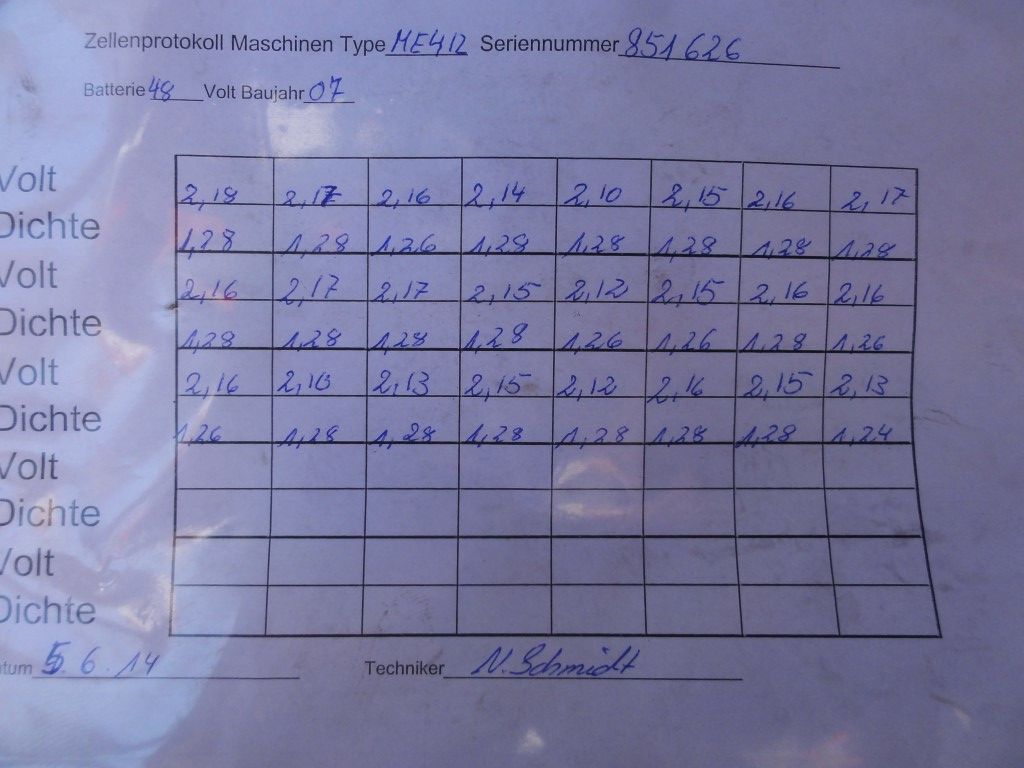 Zellenprotokoll Maschinen Type ME412 Seriennummer 851626
Batterie 48 Volt Baujahr 07
Volt 2,18 2,17 2,16 2,14 2,10 2,15 2,16 2,17
Dichte 1,28 1,28 1,26 1,28 1,28 1,28 1,28 1,28
Volt 2,16 2,17 2,17 2,15 2,12 2,15 2,16 2,16
Dichte 1,28 1,28 1,28 1,28 1,26 1,26 1,28 1,26
Volt 2,16 2,13 2,15 2,12 2,16 2,15 2,13
Dichte 1,26 1,28 1,28 1,28 1,28 1,28 1,28 1,24
Volt
Dichte
Volt
Dichte
tum 5. 6. 14 Techniker N. Schmidt